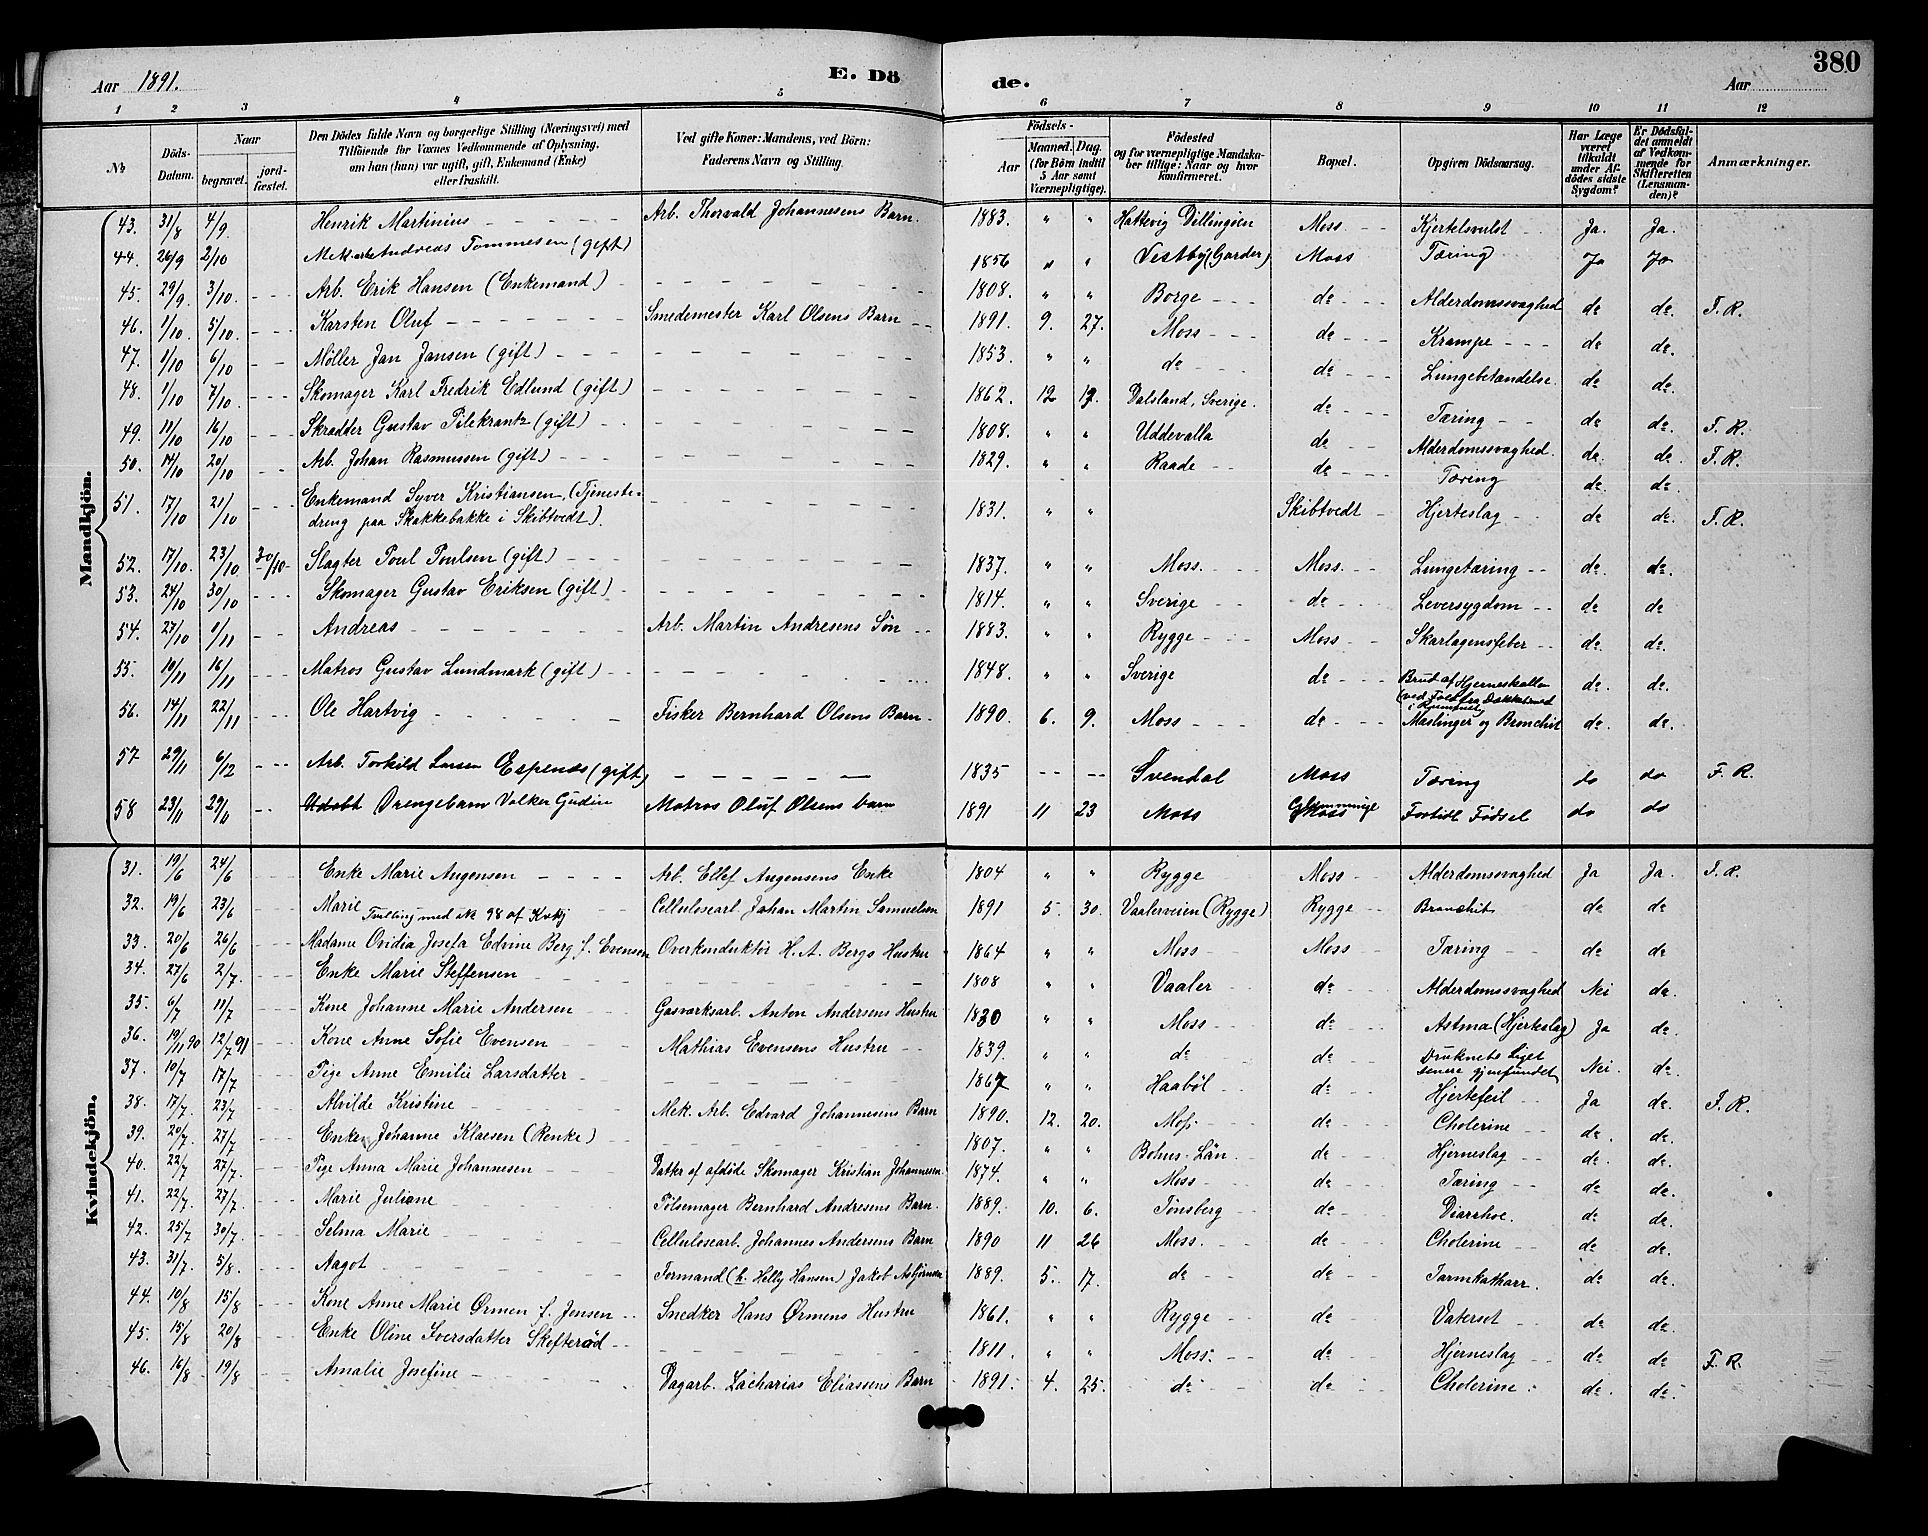 Aar 1891. E. Dö de. Aar 380
1 2 3 4 5 6 7 8 9 10 11 12
№ Döds-Datum. Naar begravet. jord-fæstet. Den Dödes fulde Navn og borgerlige Stilling (Næringsvei) med Tilföiende for Voxnes Vedkommende af Oplysning, om han (hun) var ugift, gift, Enkemand (Enke) eller fraskilt. Ved gifte Koner: Mandens, ved Börn: Faderens Navn og Stilling. Födsels- Aar Maaned. Dag. (for Børn indtil 5 Aar samt Værnepligtige). Födested og for værnepligtige Mandskaber tillige: Naar og hvor konfirmeret. Bopæl. Opgiven Dödsaarsag. Har Læge været tilkaldt under Afdödes sidste Sygdom? Er Dödsfaldet anmeldt af Vedkommende for Skifteretten (Lensmanden)? Anmærkninger.
Mandkjön.
43. 31/8 4/9. Henrik Martinius Arb. Thorvald Johannesens Barn. 1883. " " Hattevig Dillingöen Moss Kjertelsvulst Ja. Ja.
44. 26/9 2/10 Mek. arb. Andreas Tommesen (gift) 1856 " " Vestby (Garder) Moss Tæring Ja Ja
45. 29/9. 3/10. Arb. Erik Hansen (Enkemand) 1808. " " Borge do Alderdomssvaghed do do. F. R.
46. 1/10 5/10. Karsten Oluf Smedemester Karl Olsens Barn 1891. 9. 27. Moss do Krampe do do.
47. 1/10 6/10 Møller Jan Jansen (gift) 1853. " " do do Lungebetændelse. do do.
48. 1/10 7/10. Skomager Karl Fredrik Edlund (gift) 1862. 12 17. Dalsland, Sverige. do Tæring do do. F. R.
49. 11/10 16/10 Skrædder Gustav Pilekrantz (gift) 1808. " " Uddevalla do Alderdomssvaghed. do. do. F. R.
50. 14/10 20/10 Arb. Johan Rasmussen (gift) 1829. " " Raade do Tæring do. do.
51. 17/10 21/10 Enkemand Syver Kristiansen, (Tjeneste-
dreng paa Skakkebakke i Skibtvedt). 1831. Skibtvedt Hjerteslag do do. F. R.
52. 17/10. 23/10 30/10 Slagter Poul Poulsen (gift) 1837. " " Moss. Moss. Lungetæring do. do.
53. 24/10 30/10 Skomager Gustav Eriksen (gift) 1814. " " Sverige do Leversygdom do do
54. 27/10 1/11 Andreas Arb. Martin Andresens Søn 1883. " " Rygge Moss Skarlagensfeber do. do.
55. 10/11 16/11 Matros Gustav Lundmark (gift) 1848. " " Sverige do Brud af Hjerneskallen
(ved Fald fra Dækket ned
i Rummet) do. do.
56. 14/11 22/11 Ole Hartvig Fisker Bernhard Olsens Barn 1890. 6. 9. Moss do Mæslinger og Bronchit do. do.
57 29/11 6/12 Arb. Torkild Larsen Espenæs (gift) 1835 Svendal Moss Tæring do do F. R.
58 23/11 29/11 Udøbt Drengebarn Volker Gudin Matros Oluf Olsens barn 1891 11 23 Moss Moss Fortidl. Fødsel do do
Kvindekjön.
31. 19/6 24/6 Enke Marie Augensen Arb. Ellef Augensens Enke 1804 " " Rygge Moss Alderdomssvaghed Ja Ja. F. R.
32. 19/6 23/6 Marie
Tvilling med № 98 af Kvkj Cellulosearb. Johan Martin Samuelsen 1891 5. 30. Vaalerveien (Rygge) Rygge Bronchit do do
33. 20/6 26/6 Madame Ovidia Josefa Edvine Berg f. Evensen Overkonduktør H. A. Bergs Hustru 1864 " " Moss Moss Tæring do do
34. 27/6 2/7. Enke Marie Steffensen 1808 " " Vaaler do Alderdomssvaghed Nei do.
35. 6/7 11/7 Kone Johanne Marie Andersen Gasværksarb. Anton Andersens Hustru 1830 " " Moss do Astma (Hjerteslag) Ja do.
36. 19/11 90 12/7 91 Kone Anne Sofie Evensen Mathias Evensens Hustru 1839. " " do do Druknet. Liget
senere gjenfundet Nei. do.
37. 10/7 17/7 Pige Anne Emilie Larsdatter 1867 " " Haabøl do Hjertefeil Ja do. F. R.
38. 17/7. 23/7 Alvilde Kristine Mek. Arb. Edvard Johannesens Barn 1890. 12. 20. Moss. do Cholerine do. do.
39. 20/7. 27/7. Enke Johanne Klaesen (Renke) 1807. " " Bohus-Län do Hjerneslag do. do.
40. 22/7 27/7. Pige Anna Marie Johannesen Datter af afdøde Skomager Kristian Johannesen. 1874. " " Moss do Tæring do do.
41. 22/7. 27/7. Marie Juliane Pølsemager Bernhard Andresens Barn. 1889. 10. 6. Tønsberg do Diarrhoe. do do.
42. 25/7 30/7. Selma Marie Cellulosearb. Johannes Andersens Barn 1890 11 26 Moss. do Cholerine do do.
43. 31/7. 5/8. Aagot Formand (h. Helly Hansen) Jakob Asbjørnsen 1889. 5. 17. do do Tarmkatharr. do do.
44. 10/8 15/8 Kone Anne Marie Ørmen f. Jensen Snedker Hans Ørmens Hustru 1861. " " Rygge do Vatersot do do.
45. 15/8 20/8 Enke Oline Iversdatter Skofterød 1811. " " Moss. do Hjerneslag do do F. R.
46. 16/8 19/8 Amalie Josefine Dagarb. Zacharias Eliassens Barn 1891. 4. 25. do do Cholerine. do. do.